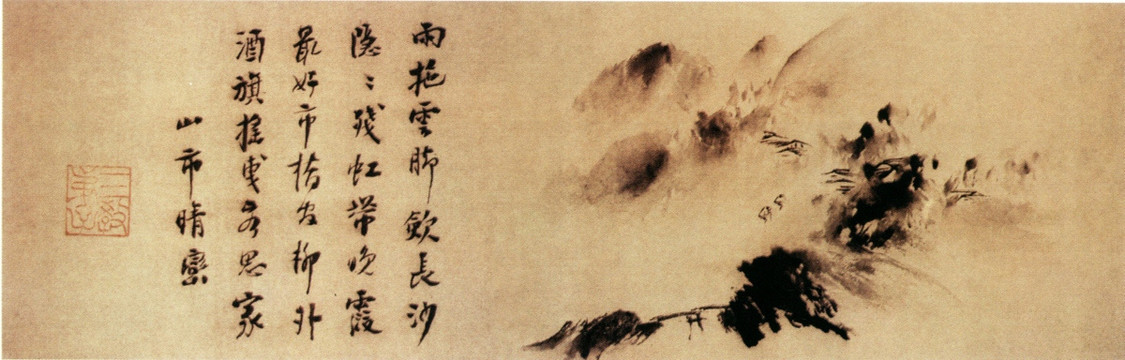 雨拖雲脚斂長沙
隱〻殘虹帶晚霞
最好市橋官柳外
酒旗搖曳客思家
山市晴巒